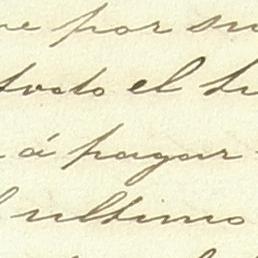 por su
todo el
á pagar
ultimo